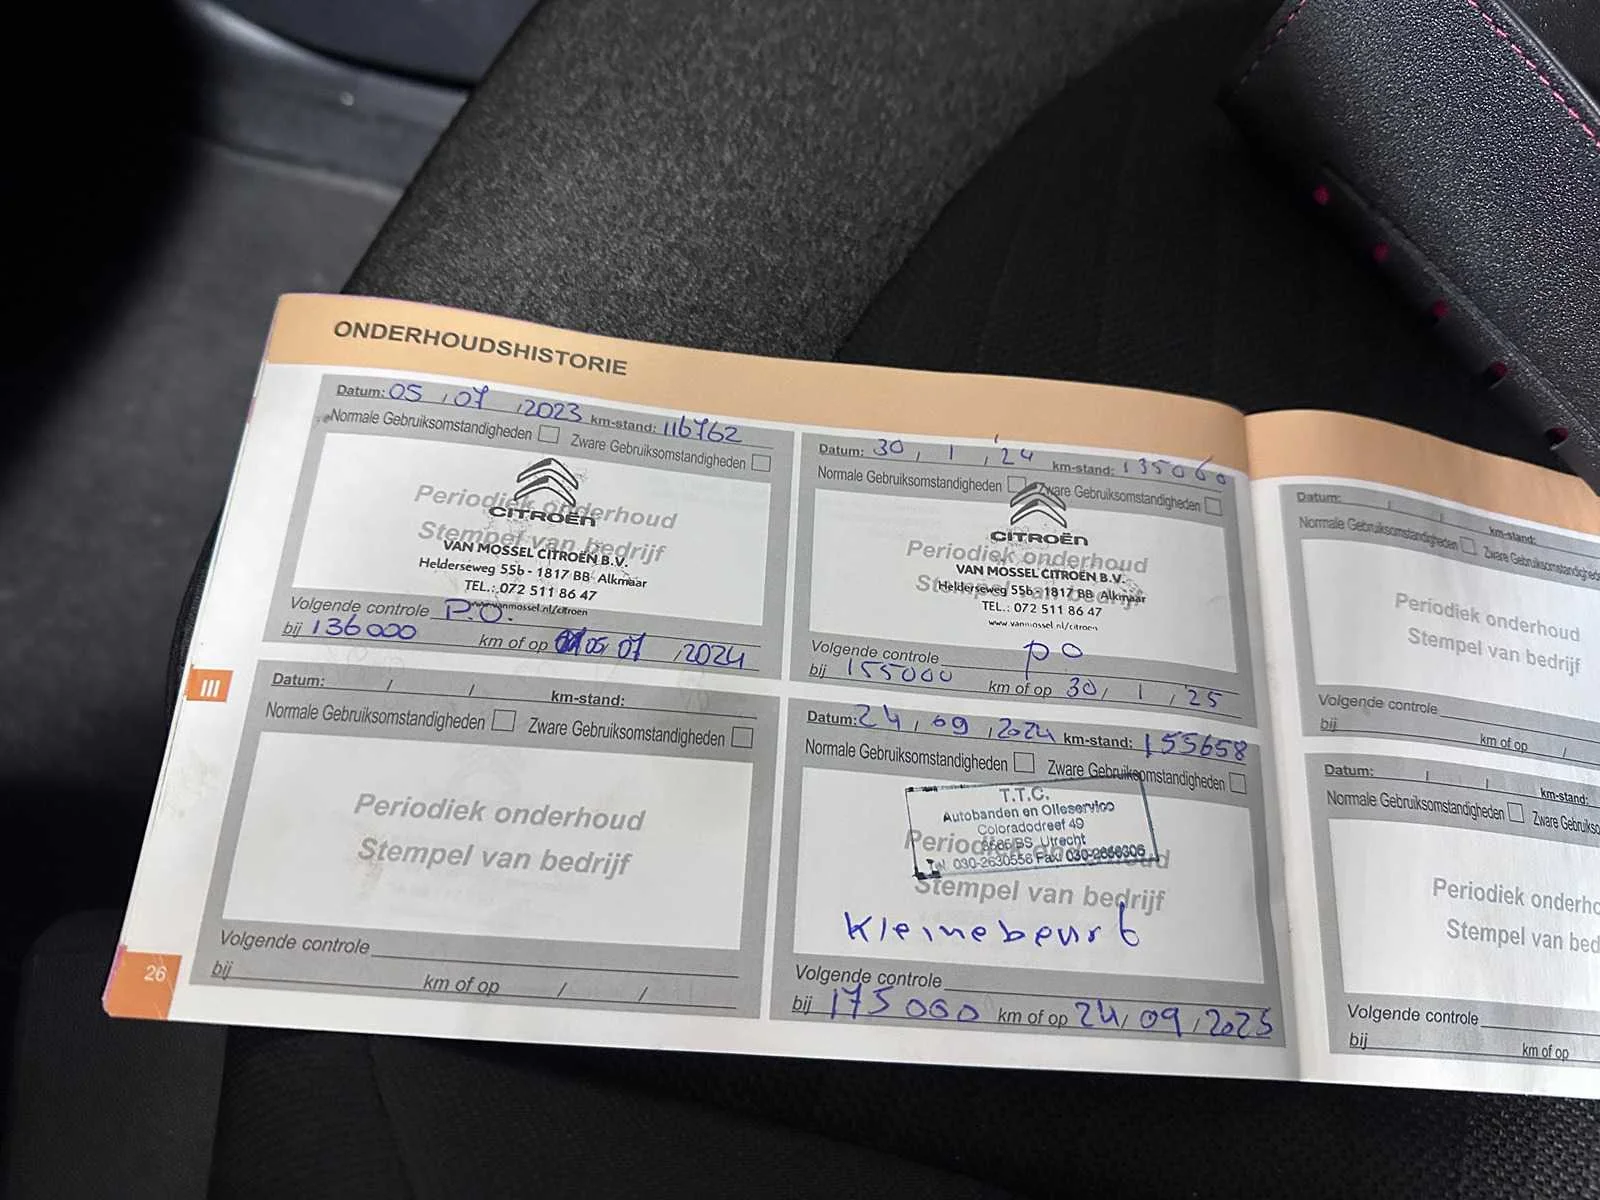 ONDERHOUDSHISTORIE
Datum: 05 / 07 / 2023 km-stand: 116762
Normale Gebruiksomstandigheden Zware Gebruiksomstandigheden
Periodiek onderhoud
Stempel van bedrijf
CITROËN
VAN MOSSEL CITROËN B.V.
Helderseweg 55b - 1817 BB Alkmaar
TEL.: 072 511 86 47
www.vanmossel.nl/citroen
Volgende controle P.O.
bij 136000 km of op 05 / 07 / 2024
Datum: 30 / 1 / 24 km-stand: 135060
Normale Gebruiksomstandigheden Zware Gebruiksomstandigheden
CITROËN
Periodiek onderhoud
Stempel van bedrijf
VAN MOSSEL CITROËN B.V.
Helderseweg 55b - 1817 BB Alkmaar
TEL.: 072 511 86 47
www.vanmossel.nl/citroen
Volgende controle po
bij 155000 km of op 30 / 1 / 25
III
Datum: / / km-stand:
Normale Gebruiksomstandigheden Zware Gebruiksomstandigheden
Periodiek onderhoud
Stempel van bedrijf
Volgende controle
bij km of op / /
26
Datum: 24 / 09 / 2024 km-stand: 155658
Normale Gebruiksomstandigheden Zware Gebruiksomstandigheden
T.T.C.
Autobanden en Olieservice
Coloradodreef 49
BS Utrecht
030-2630556 Fax:
Periodiek onderhoud
Stempel van bedrijf
Kleinebeurt
Volgende controle
bij 175000 km of op 24 / 09 / 2025
Datum: / / km-stand:
Normale Gebruiksomstandigheden Zware Gebruiksomstandighe
Periodiek onderhoud
Stempel van bedrijf
Volgende controle
bij km of op /
Datum: / / km-stand:
Normale Gebruiksomstandigheden Zware Gebruikso
Periodiek onderho
Stempel van bed
Volgende controle
bij km of op